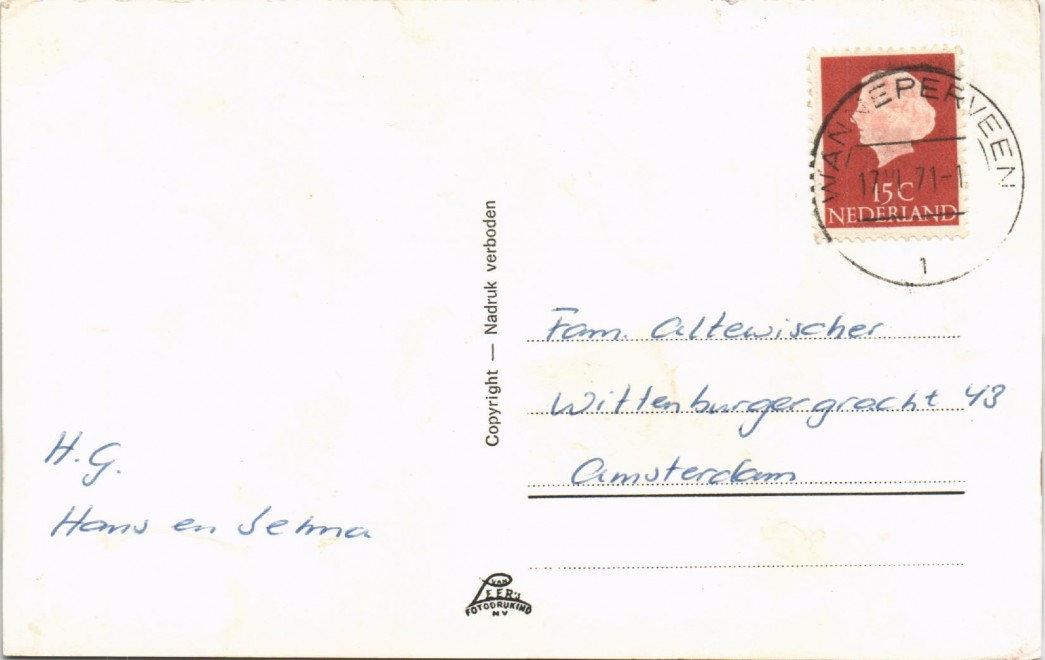 WANNEPERVEEN
17 VI 71-1
1
15C
NEDERLAND
Copyright — Nadruk verboden
Fam. Altewischer
Wittenburgergracht 43
Amsterdam
H.G.
Hans en Selma
VAN
LEER's
FOTODRUKIND
NV